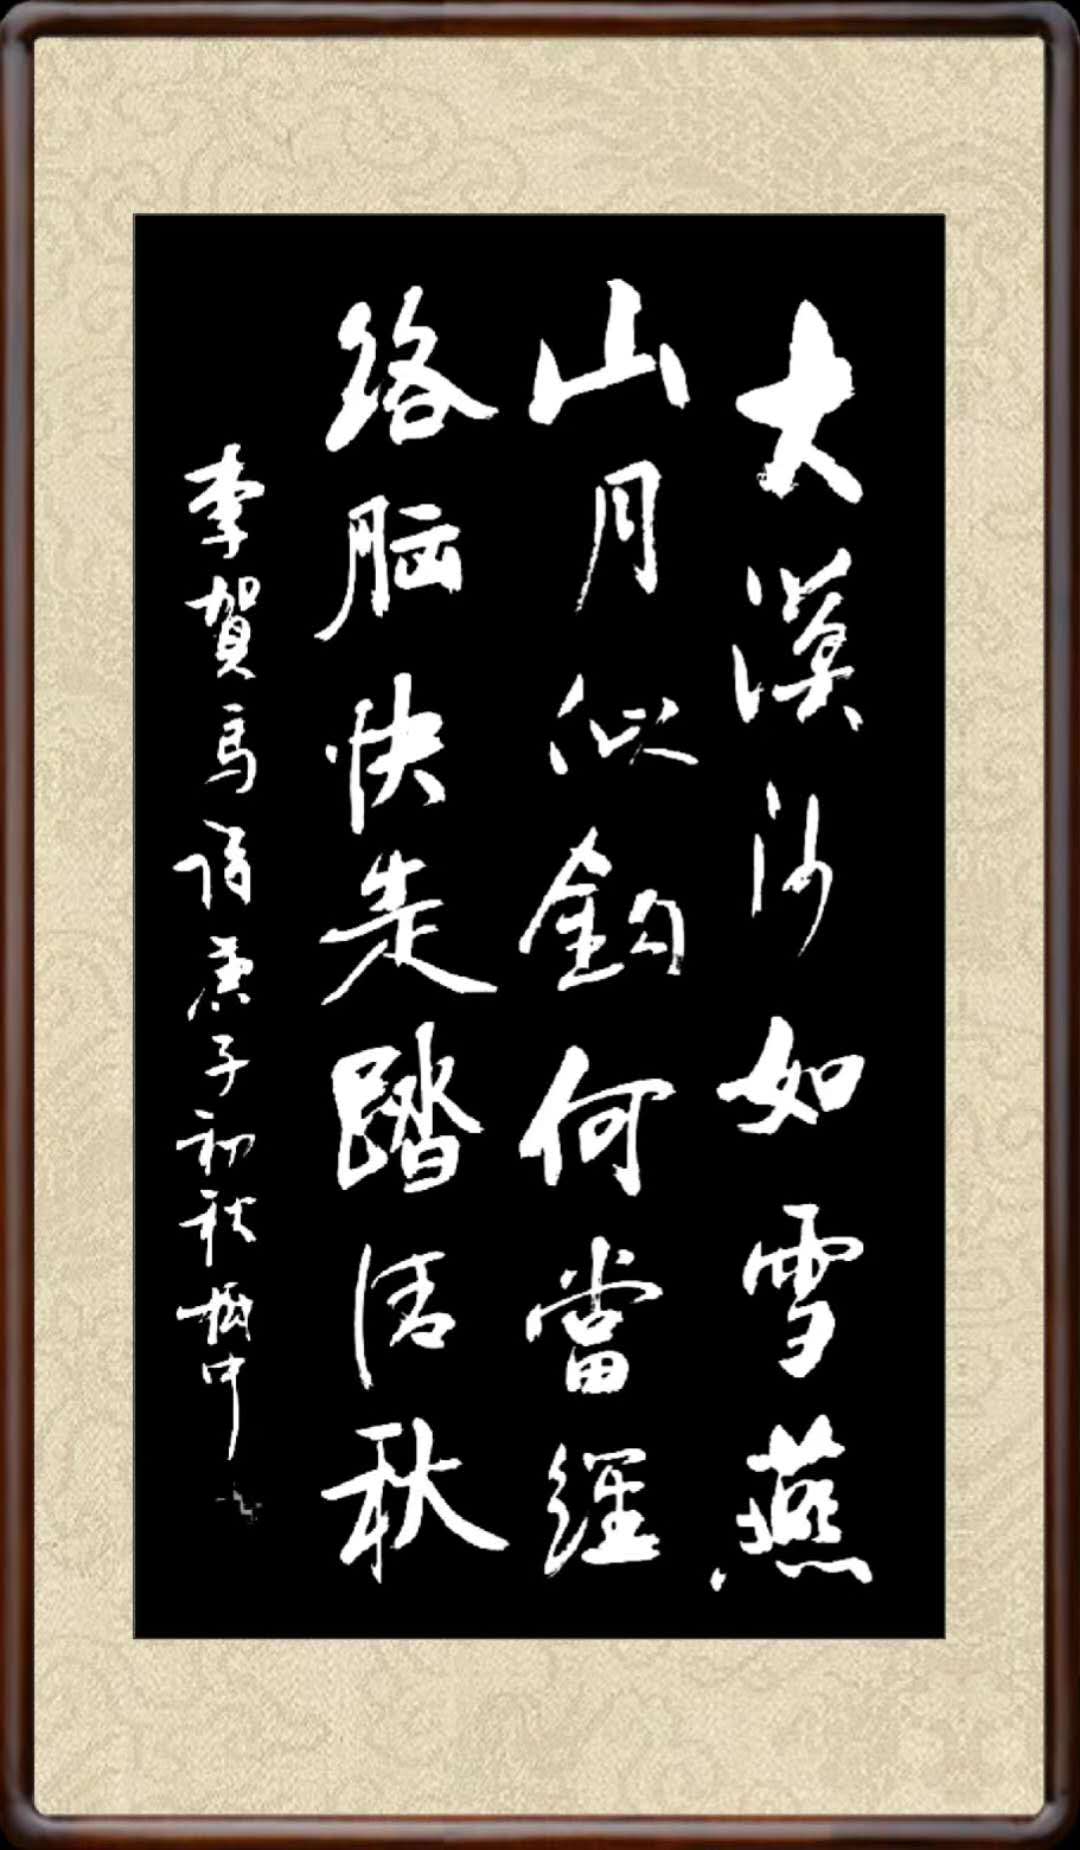 大漠沙如雪燕
山月似鈎何當經
絡脑快走踏清秋
李賀馬詩庚子初秋中